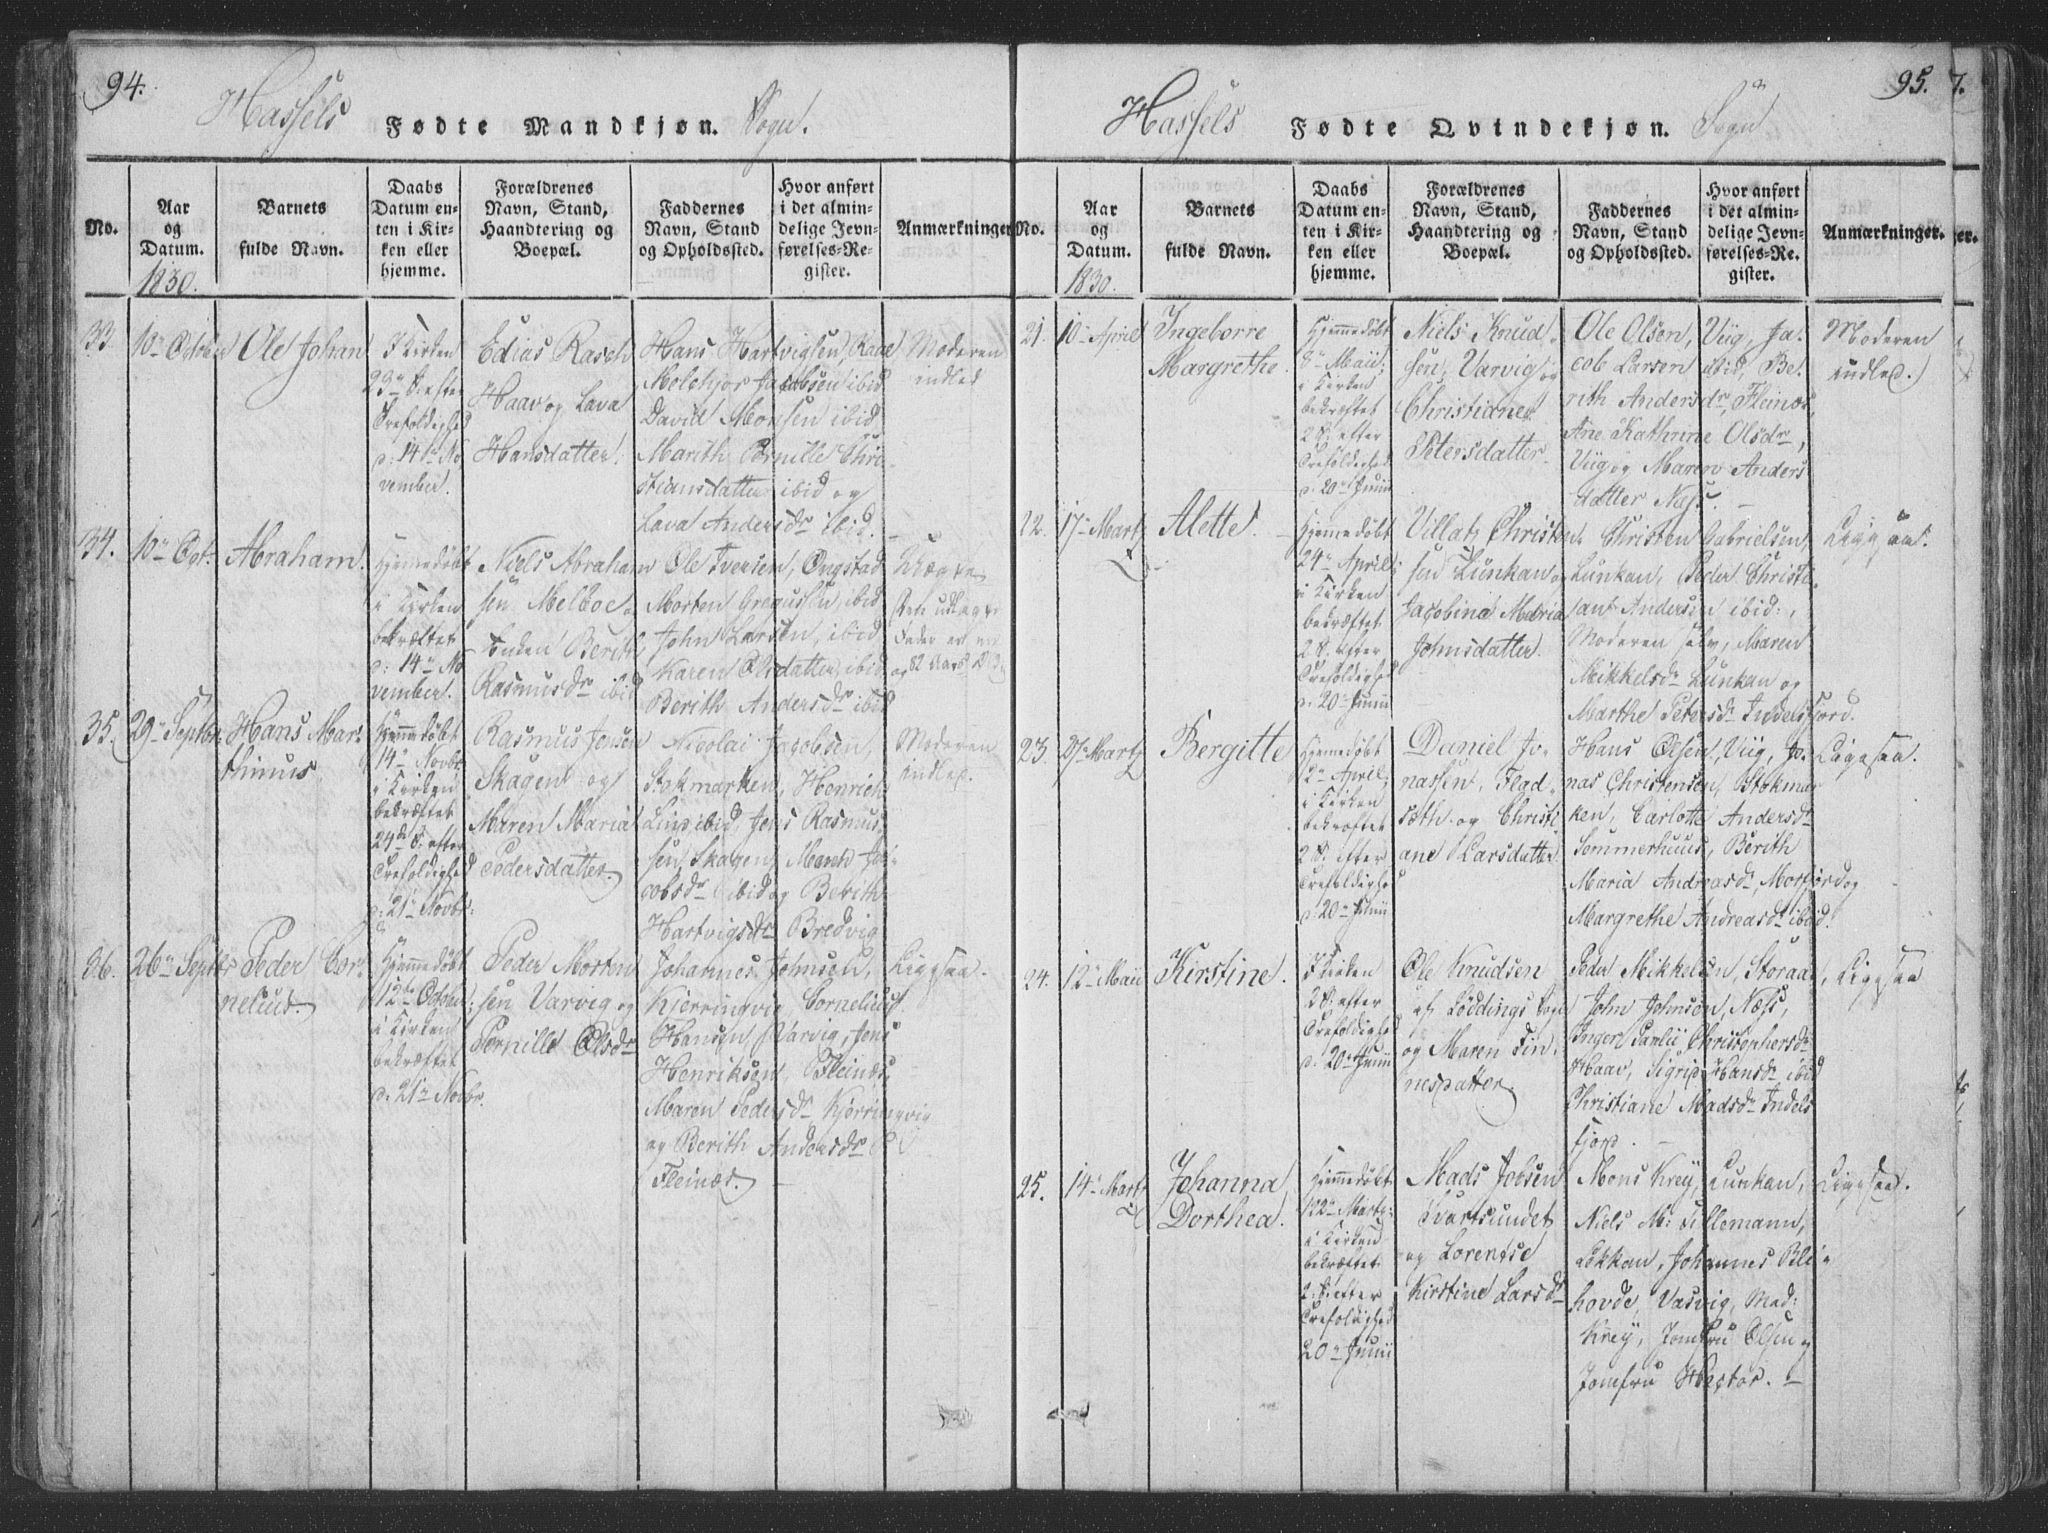 94.
Hassels Fødte Mandkjøn. Sogn.
No.
Aar og Datum.
Barnets fulde Navn.
Daabs Datum enten i Kirken eller hjemme.
Forældrenes Navn, Stand, Haandtering og Boepæl.
Faddernes Navn, Stand og Opholdssted.
Hvor anført i det almindelige Jevnførelses-Register.
Anmærkninger
1830.
33.
10de Octbr
Ole Johan
I Kirken
23de S. efter
Trefoldighed
d: 14de No
vember.
Edias Rasch
Haav og Lava
Hansdatter.
Hans Hartvigsen
Melchior Jacobsen ibid
David Monsen ibid
Marith Pernille Chri-
stiansdatter ibid og
Lava Andersdr ibid.
Moderen
indled
34.
10de Oct.
Abraham.
Hjemedøbt
i Kirken
bekræftet
d: 14de No
vember.
Niels Abraham
sen Melboe
Enken Berith
Rasmusdr ibid
Ole Iversen, Ongstad
Morten Gregussen, ibid
John Larsen, ibid
Karen Olsdatter, ibid
Berith Andersdr ibid
35.
29de Septbr.
Hans Mar-
thinus
Hjemedøbt
14de Novbr
i Kirken
bekræftet
24de S. efter
Trefoldighed
d: 21de Novbr.
Rasmus Jensen
Skagen og
Maren Maria
Pedersdatter.
Nicolai Jacobsen,
Stokmarken, Henrich
Lind ibid, Jens Rasmus-
sen, Skagen, Maren Ja-
cobsdr ibid og Berith
Hartvigsdr Bredvig
Moderen
indled.
36.
26de Septbr
Peder Cor-
nelius.
Hjemedøbt
12te October
i Kirken
bekræftet
d: 21de Novbr.
Peder Morten
sen Varvig og
Pernille Olsdr
Johannes Johnsen,
Kierringvig Cornelius
Hansen, Varvig, Jens
Henriksen, Fleinæs,
Maren Pedersdr Kjerringvig
og Berith Andersdr
Fleinæs.
Liggsaa.
95.
7.
Hassels Fødte Qvindekjøn. Sogn
No.
Aar og Datum.
Barnets fulde Navn.
Daabs Datum enten i Kirken eller hjemme.
Forældrenes Navn, Stand, Haandtering og Boepæl.
Faddernes Navn, Stand og Opholdssted.
Hvor anført i det almindelige Jevnførelses-Register.
Anmærkninger.
1830.
21.
10de April
Ingeborre
Margrethe
Hjemedøbt
8de Maii,
i Kirken
bekræftet
2 S. efter
Trefoldighed
d. 20de Junii
Niels Knud-
sen, Varvig og
Christiane
Petersdatter
Ole Olsen, Viig, Ja-
cob Larsen ibid, Be-
rith Andersdr, Fleinæs,
Ane Kathrine Olsdr,
Viig og Maren Anders
datter Næss.
Moderen
indled.
22.
17de Marty
Alette.
Hjemedøbt
24de April,
i Kirken
bekræftet
2 S. efter
Trefoldighed
d. 20de Junii
Villats Christen
sen Lunkan og
Jacobina Maria
Johnsdatter.
Christen Gabrielsen,
Lunkan, Peder Christi-
ant Andersen ibid.,
Moderen selv, Maren
Mikkelsdr Lunkan og
Marthe Petersdr Indelsfjord.
Liggsaa.
23.
27de Marty
Bergitte
Hjemedøbt
12de April,
i Kirken
bekræftet
2 S. efter
Trefoldighed
d: 20de Junii
Daniel Jo-
nassen, Flad-
sæth og Christi
ane Larsdatter
Hans Olsen, Viig, Jo-
nas Christensen, Stokmar
ken, Carlotte Andersdr
Sommerhuus, Berith
Maria Andreasdr, Morfjord og
Margrethe Andreasdr ibid.
Liggsaa.
24.
12de Maii
Kirstine.
I Kirken
2 S. efter
Trefoldighed
d. 20de Junii
Ole Knudsen
af Løddings Sogn
og Maren Fin-
nesdatter.
Peder Mikkelsen, Storaa,
John Johnson, Næss,
Inger Parlii Christophersdr
Haav, Sigrid Hansdr ibid
Christiane Madsdr Indels
fjord.
Liggsaa
25.
14de Marty
Johanna
Dorthea.
Hjemedøbt
Marty,
i Kirken
bekræftet
2 S. efter
Trefoldighed
20de Junii
Mads Jobsen
Svartsundet
og Lorentse
Kirstine Larsdr
Mons Krey, Lunkan,
Niels M: Tillemann,
Løkkan, Johannes Bli-
hovde, Vasvig, Mad:
Krey, Jomfru Olsen og
Jomfru Hector.
Liggsaa.